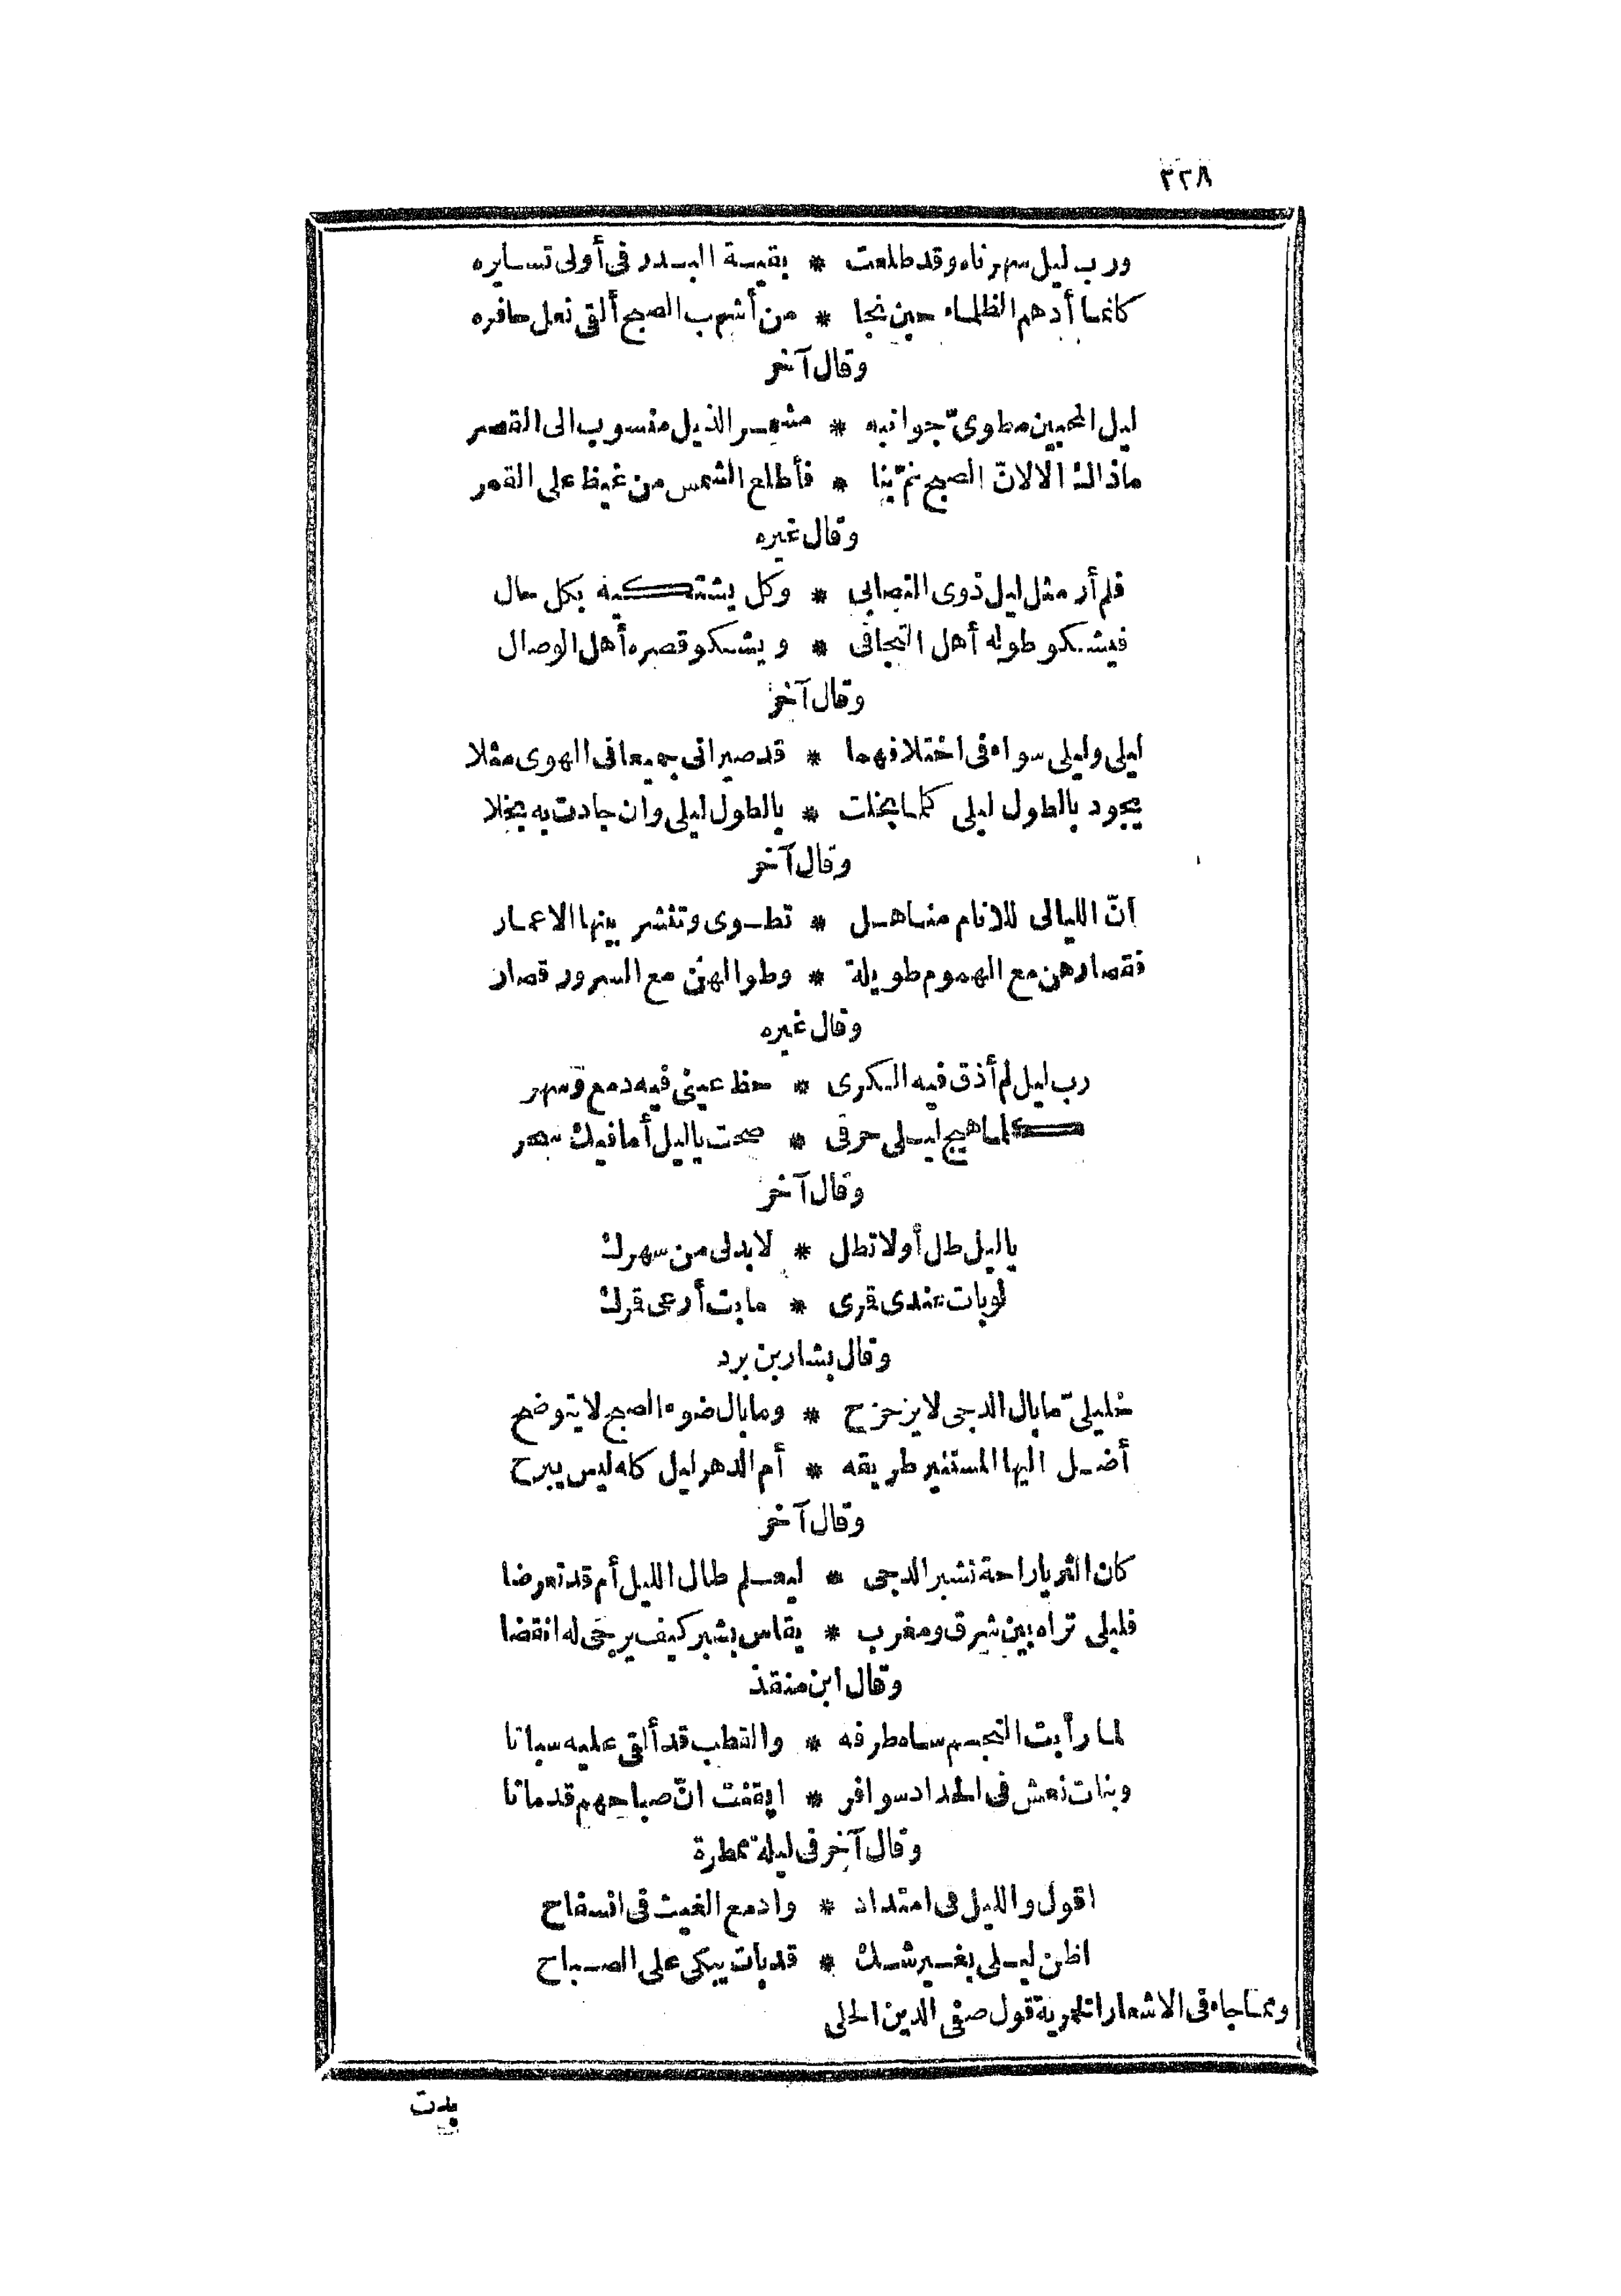 ٣٢٨
ورب ليل سهرناه وقد طلعت * بقية البدر فى أولى تسايره
كانما أدهم الظلماء حين نجا * من أشهب الصبح ألقى نعل حافره
وقال آخر
ليل المحبين مطوىّ جوانبه * مشمر الذيل منسوب الى القصر
ماذاك الا لانّ الصبح نمّ بنا * فأطلع الشمس من غيظ على القمر
وقال غيره
فلم أر مثل ليل ذوى التصابى * وكل يشتكيه بكل حال
فيشكو طوله أهل التجافى * ويشكو قصره أهل الوصال
وقال آخر
ليلى وليلى سواء فى اختلافهما * قد صيرانى جميعا فى الهوى مثلا
يجود بالطول ليلى كلما بخلت * بالطول ليلى وان جادت به بخلا
وقال آخر
انّ الليالى للانام مناهل * تطوى وتنشر بينها الاعمار
فقصارهن مع الهموم طويلة * وطوالهنّ مع السرور قصار
وقال غيره
رب ليل لم أذق فيه الكرى * حظ عينى فيه دمع وسهر
كلما هيج ليلى حرقى * صحت ياليل أما فيك سحر
وقال آخر
ياليل طل أولا تطل * لابد لى من سهرك
لوبات عندى قمرى * مابت أرعى قمرك
وقال بشار بن برد
خليلىّ مابال الدجى لايزحزح * ومابال ضوء الصبح لايتوضح
أضل اليها المستنير طريقه * أم الدهر ليل كله ليس يبرح
وقال آخر
كان الثريا راحة تشبر الدجى * ليعلم طال الليل أم قد تعرضا
فليلى تراه بين شرق ومغرب * يقاس بشبر كيف يرجى له انقضا
وقال ابن منقذ
لما رأيت النجم ساه طرفه * والقطب قد ألقى عليه سباتا
وبنات نعش فى الحداد سوافر * ايقنت انّ صباحهم قد ماتا
وقال آخر فى ليلة ممطرة
اقول والليل فى امتداد * وادمع الغيث فى انسفاح
اظن ليلى بغير شك * قد بات يبكى على الصباح
ومما جاء فى الاشعار الخمرية قول صفى الدين الحلى
بدت